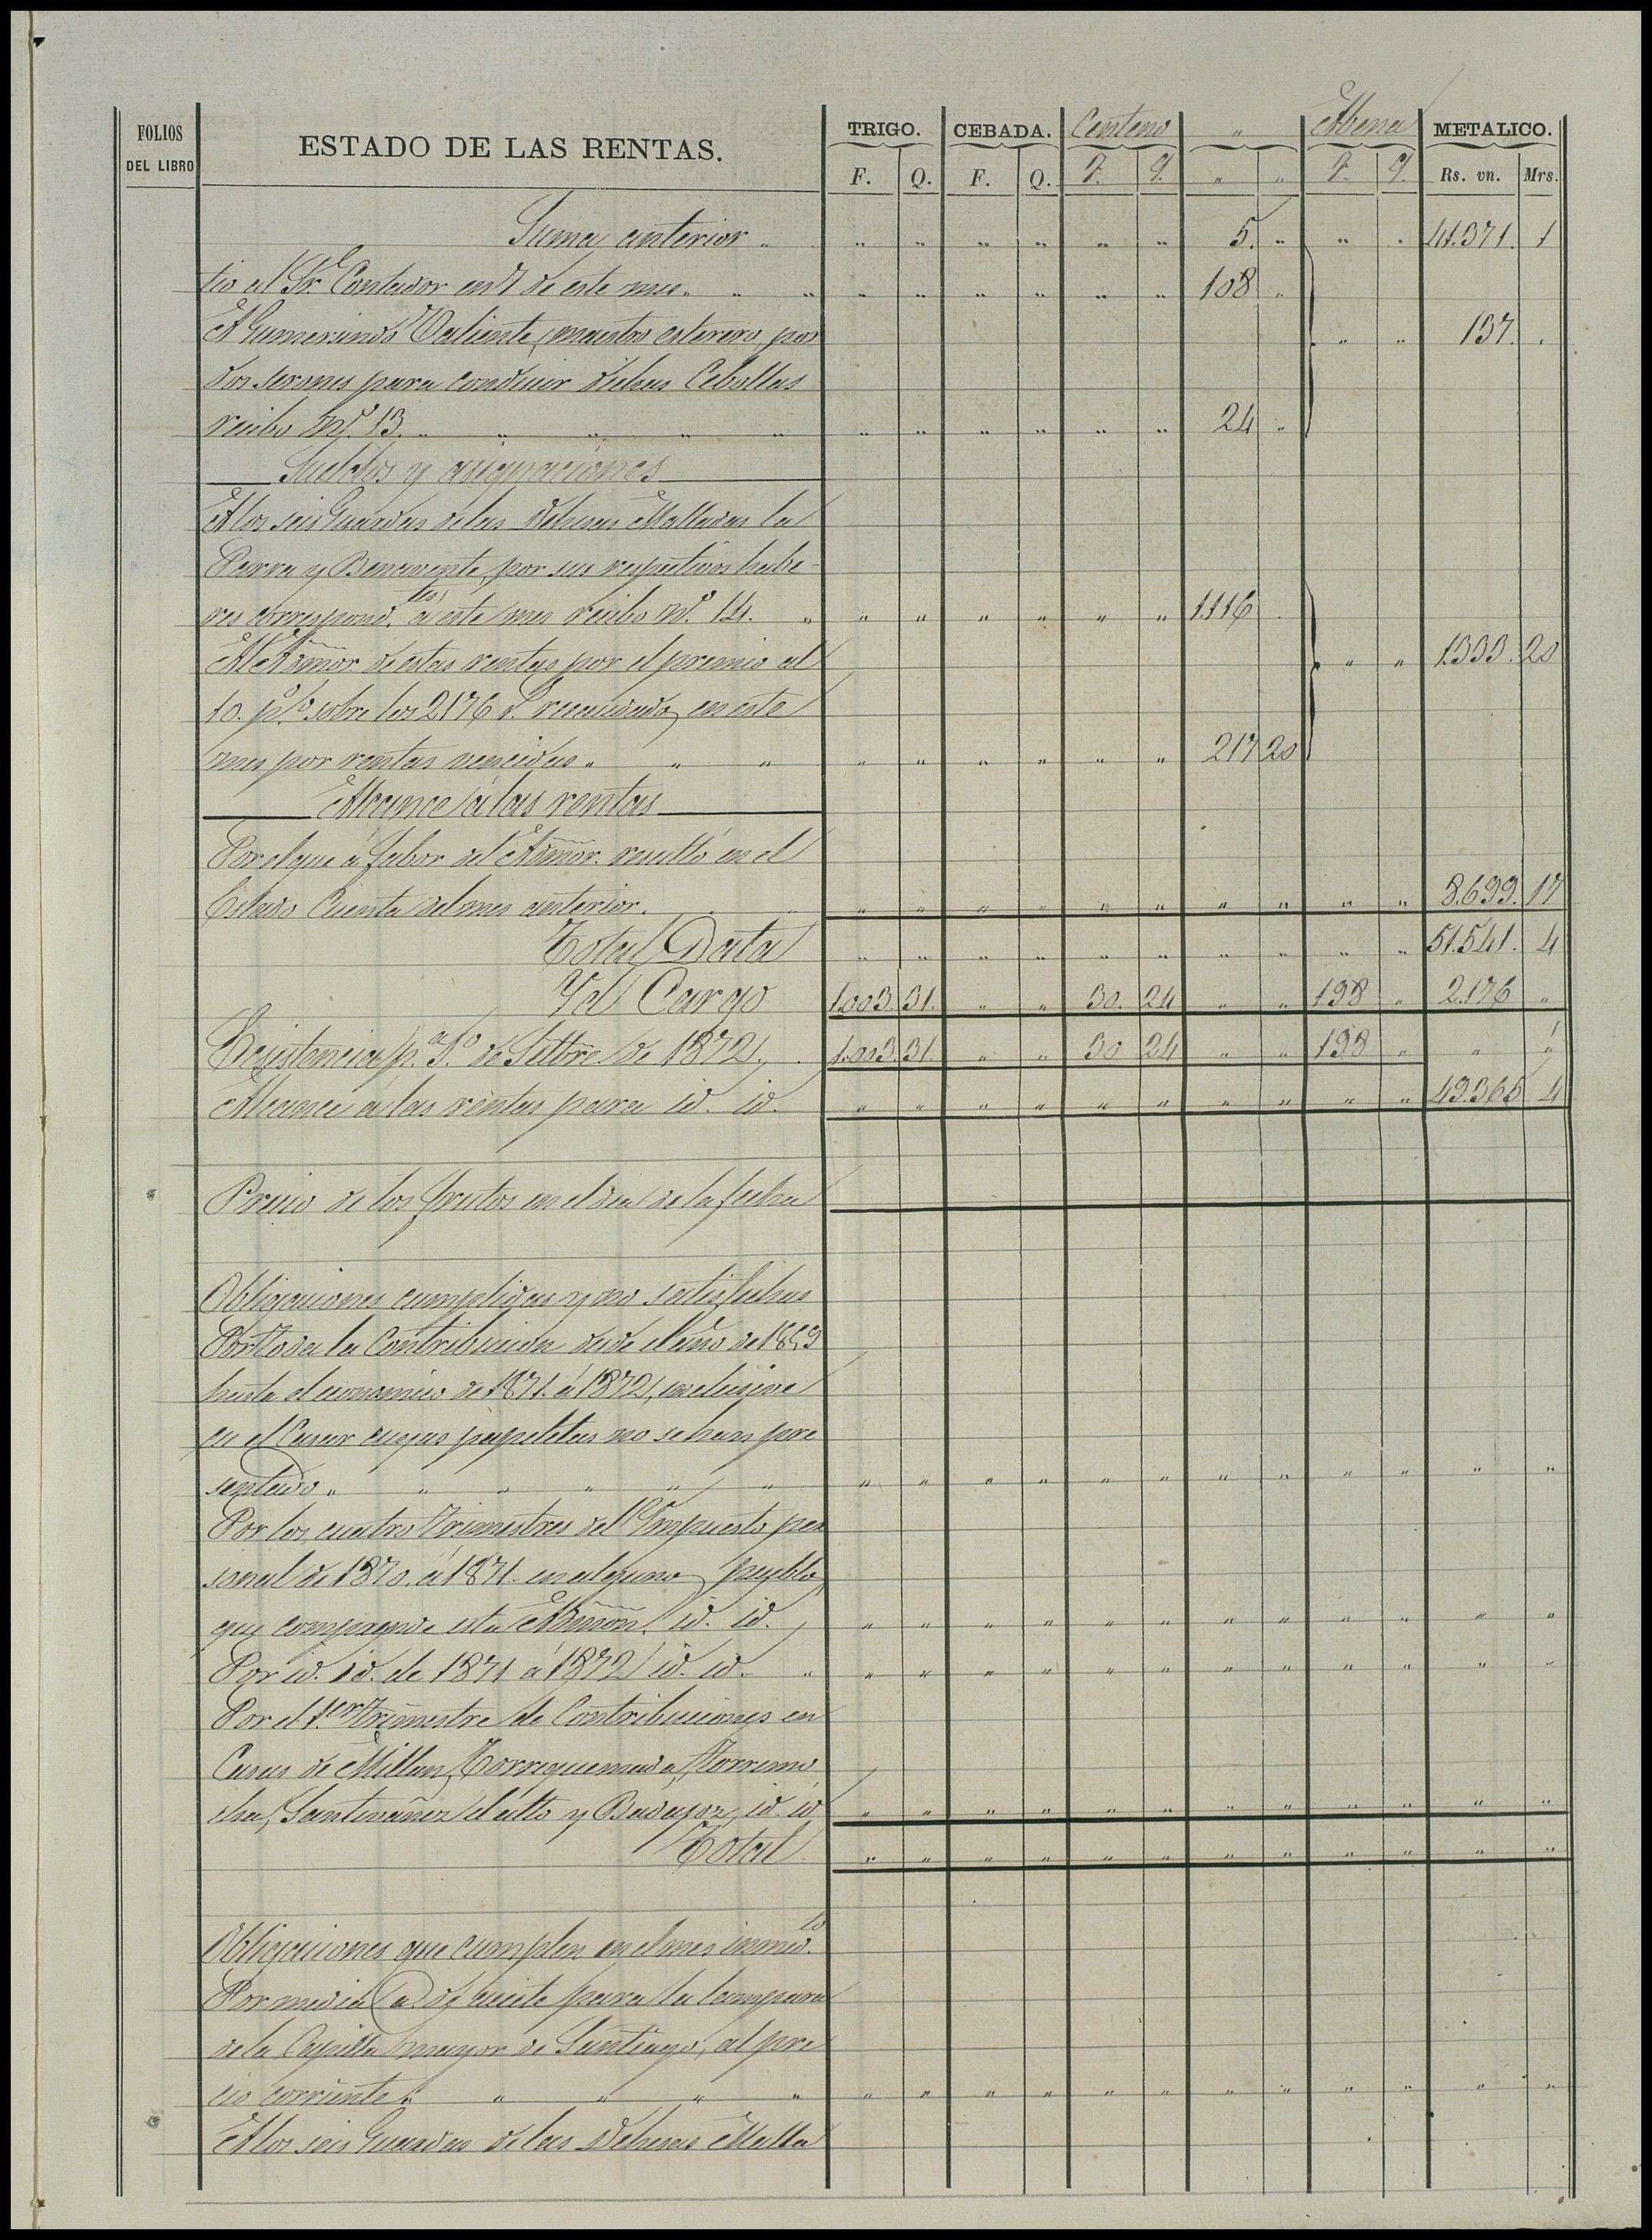 FOLIOS DEL LIBRO
ESTADO DE LAS RENTAS.
TRIGO. CEBADA. Centeno " Abena METALICO.
F. Q. F. Q. F. Q. " " F. Q. Rs. vn. Mrs.
Suma anterior " " " " " " " 5. " " " 41.371. 1
tio al Sr. Contador en 7 de este mes. " " " " " " " " 108 "
A Gumersindo Valiente, maestro esterero, por " " 137. "
dos serones para conducir dichas Cebollas
recibo nº. 13. " " " " " " " " " " " 24 "
Sueldos y asignaciones
A los seis Guardas de las Dehesas Malladas la
Parra y Benavente, por sus respectivos habe-
res correspond.tes á este mes recibo nº. 14. " " " " " " " 1.116
Al Admor de estas rentas por el premio al " " 1.333. 20
10. p% sobre los 2176 r. recaudados en este
mes por rentas vencidas " " " " " " " " " 217 20
Alcance á las rentas
Por el que á fabor del Admor. resultó en el
Estado Cuenta del mes anterior. " " " " " " " " " " 8.699. 17
Total Data " " " " " " " " " " 51.541. 4
Yd Cargo 1.003. 31. " " 30. 24 " " 198 " 2.176 "
Existencia p.a 1.º de Setbre. de 1872. 1.003 31. " " 30 24 " " 198 " " "
Alcance á las rentas para id. id. " " " " " " " " " " 49.365 4
Precio de los frutos en el dia de la fecha
Obligaciones cumplidas y no satisfechas
Por toda la Contribucion desde el año de 1859
hasta el economico de 1871. á 1872, inclusive
en el Casar cuyas papeletas no se han pre
sentado " " " " " " " " " " " " " " " " " "
Por los cuatro trimestres del Ympuesto per
sonal de 1870. á 1871. en alguno pueblo
que comprende esta Admon. id. id. " " " " " " " " " " " "
Por id. id. de 1871 á 1872 id. id. " " " " " " " " " " " " "
Por el 1.er trimestre de Contribuciones en
Casas de Millan, Torrequemada, Torremo
cha, Santivañez el alto y Badajoz, id. id " " " " " " " " " " " "
Total " " " " " " " " " " " "
Obligaciones que cumplen en el mes inmed.to
Por media @ de aceite para la lampara
de la Capilla mayor de Santiago, al pre
cio corriente " " " " " " " " " " " " " " " " "
A los seis Guardas de las Dehesas Malla